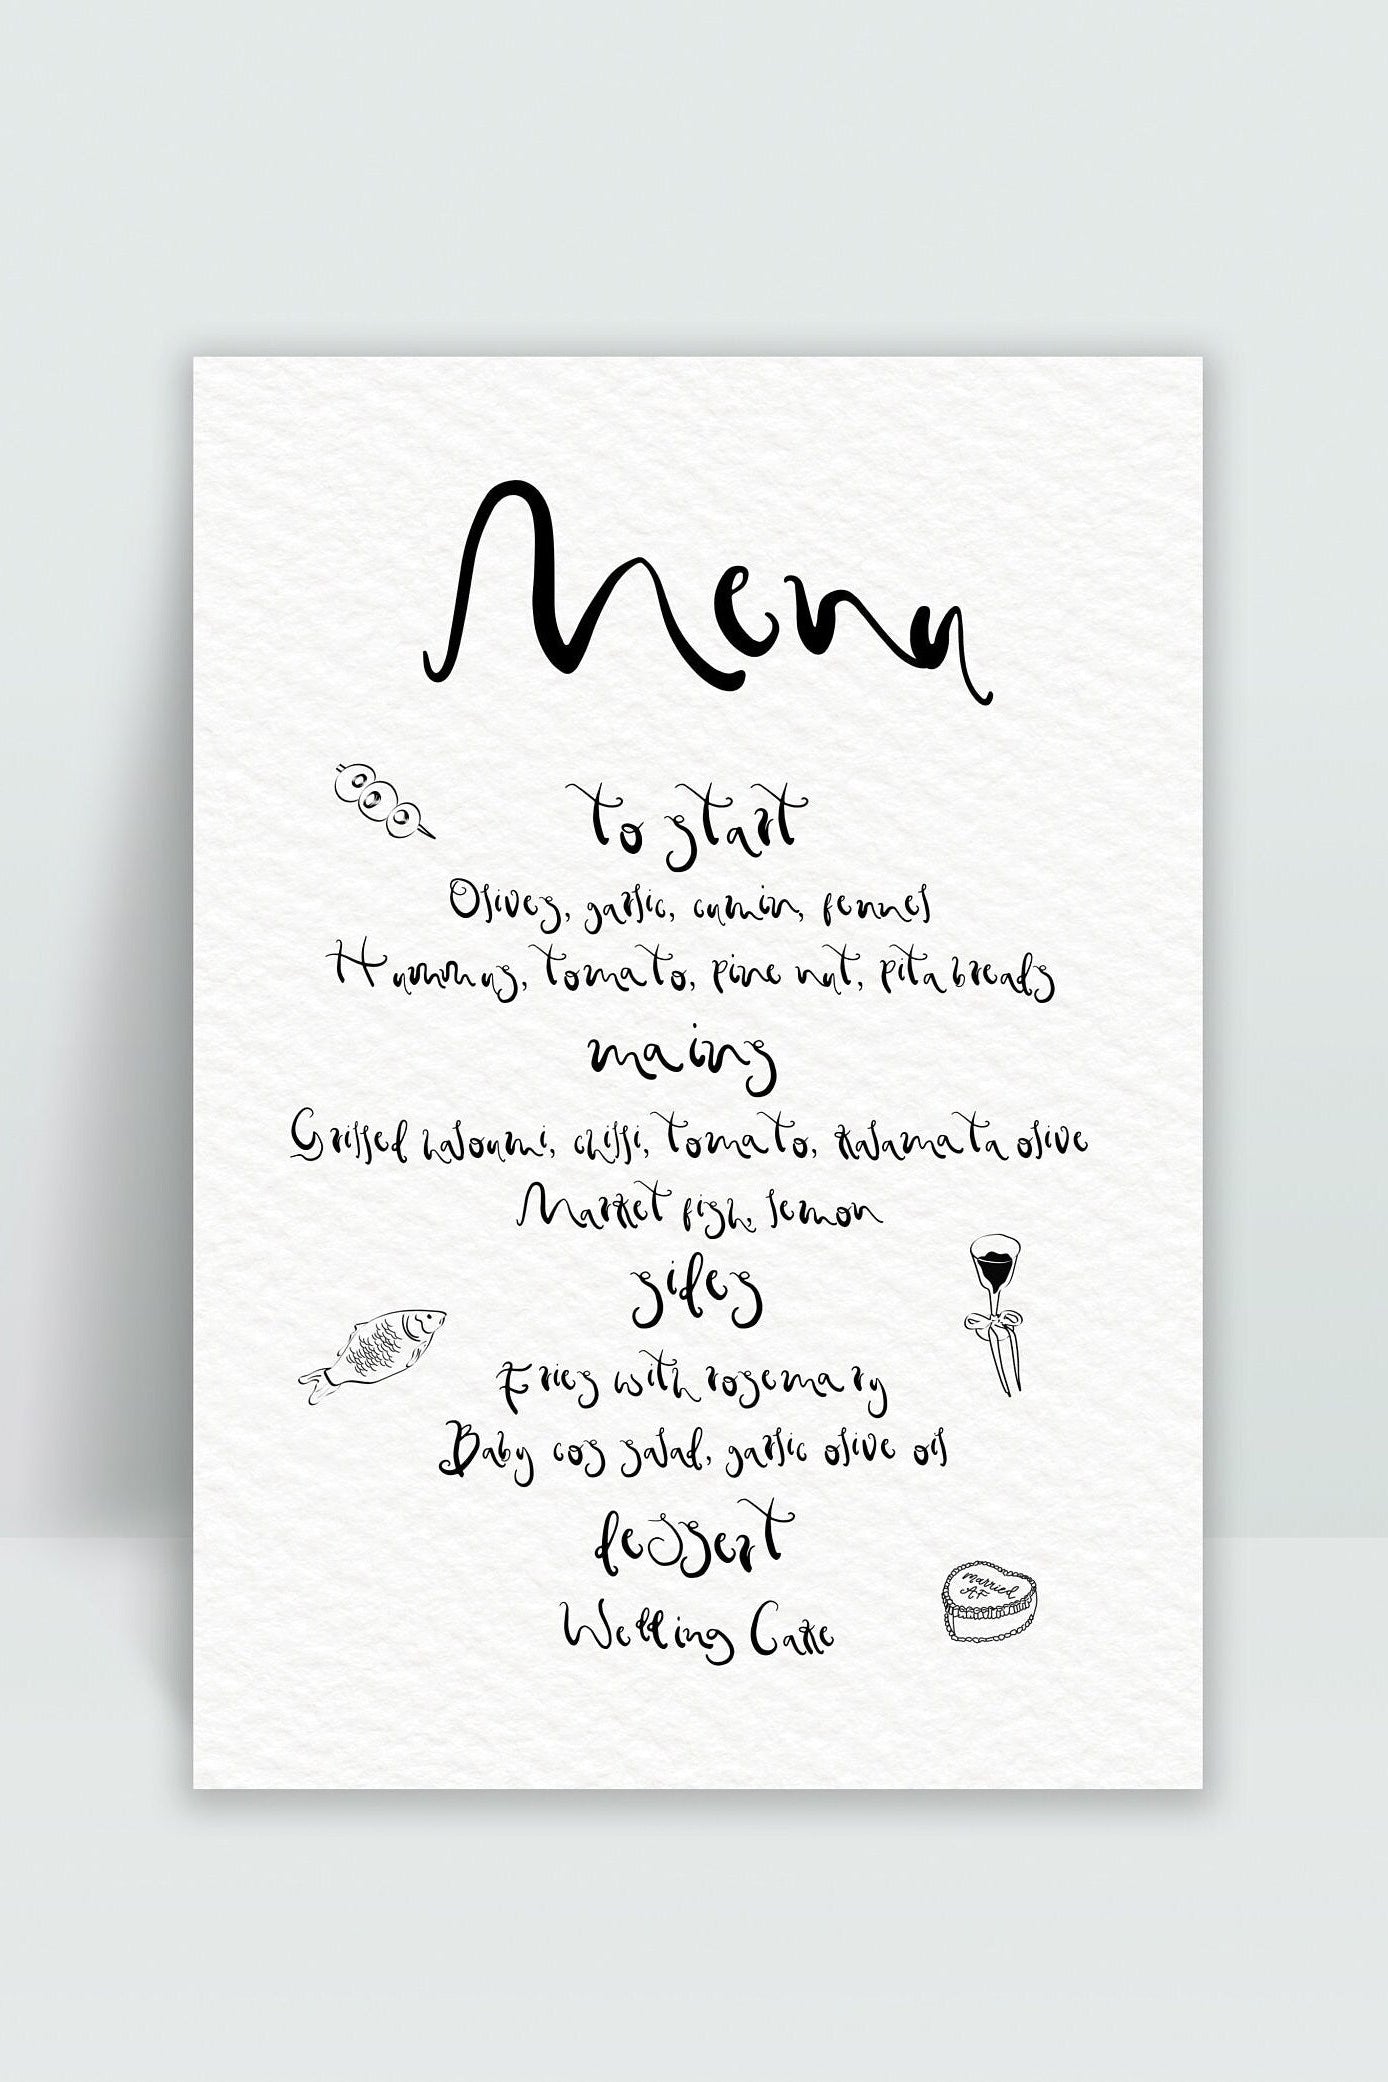 Menu
to start
Olives, garlic, cumin, fennel
Hummus, tomato, pine nut, pita breads
mains
Grilled haloumi, chilli, tomato, kalamata olive
Market fish, lemon
sides
Fries with rosemary
Baby cos salad, garlic olive oil
dessert
Wedding Cake
married
AF